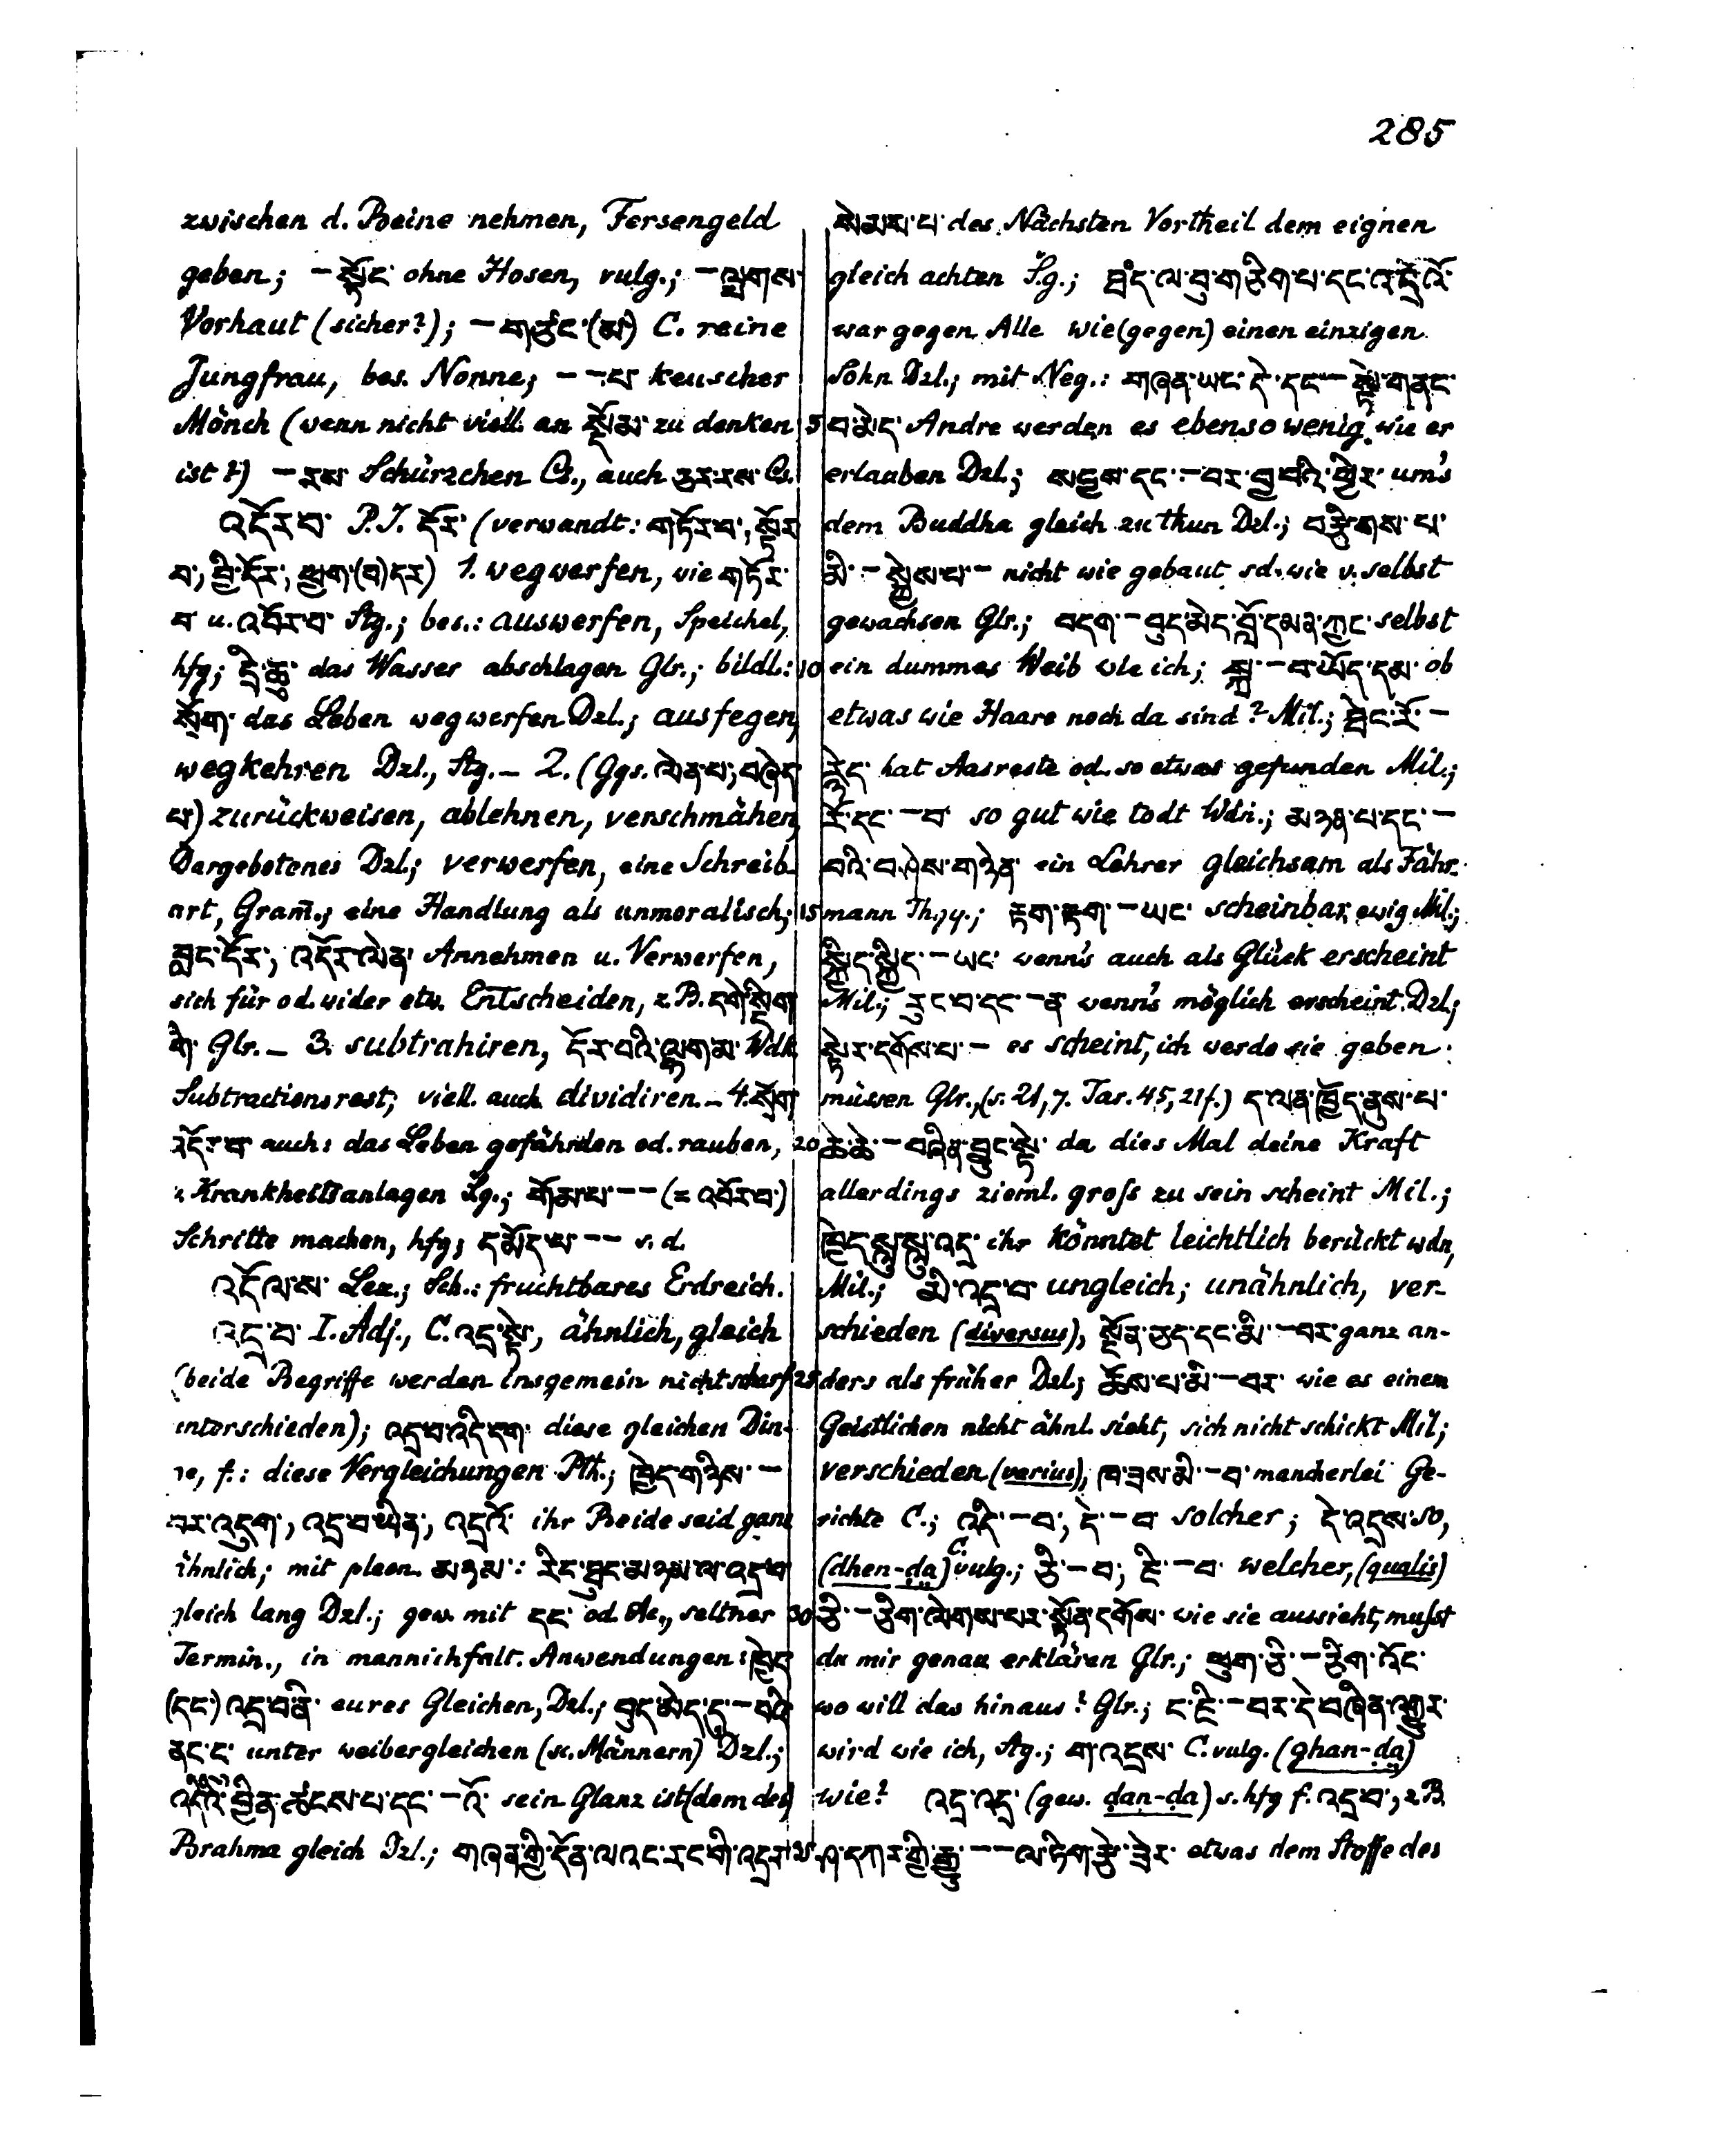 285
zwischen d. Beine nehmen, Fersengeld
geben; – སྟོང་ ohne Hosen, vulg.; – ལྤགས་
Vorhaut (sicher?); – གཙང་(མ) C. reine
Jungfrau, bes. Nonne; – –པ་ keuscher
Mönch (wenn nicht viell. an སྡོམ་ zu denken
ist?) – རས་ Schürzchen Cs., auch རས་ Cs.
འདོར་བ་ P.I. དོར་ (verwandt: གཏོར་བ་, སྟོར་
བ་, བྱི་དོར་, ཕྱག་(བ)དར) 1. wegwerfen, wie གཏོར་
བ u. འབོར་བ་ Stg.; bes.: auswerfen, Speichel,
hfg; དྲི་ཆུ་ das Wasser abschlagen Glr.; bildl.:
སྲོག་ das Leben wegwerfen Dzl.; ausfegen,
wegkehren Dzl., Stg. – 2. (Ggs. ལེན་པ་, བཞེད་
པ་) zurückweisen, ablehnen, verschmähen,
Dargebotenes Dzl.; verwerfen, eine Schreib-
art, Gram̄.; eine Handlung als unmoralisch;
བླང་དོར་, འདོར་ལེན་ Annehmen u. Verwerfen,
sich für od. wider etw. Entscheiden, z.B. དགེ་སྡིག་
གི་ Glr. – 3. subtrahiren, དོར་བའི་ལྷག་མ་ Wdk.
Subtractionsrest; viell. auch dividiren. – 4. སྲོག་
འདོར་བ་ auch: das Leben gefährden od. rauben,
v. Krankheitsanlagen Lg.; གོམ་པ་ – – (= འབོར་བ་)
Schritte machen, hfg; དམོད་པ་ – – s. d.
འདོལ་ས་ Lex.; Sch.: fruchtbares Erdreich.
འདྲ་བ་ I. Adj., C. འདྲ་སྟེ་, ähnlich, gleich
(beide Begriffe werden insgemein nicht scharf
unterschieden); འདྲ་བ་འདི་དག་ diese gleichen Din-
ge, f.: diese Vergleichungen Pth.; ཁྱེད་གཉིས་ –
བར་འདུག་, འདྲ་བ་ཡིན་, འདྲའོ་ ihr Beide seid ganz
ähnlich; mit pleon. མཉམ་: རིང་ཐུང་མཉམ་ལ་འདྲ་བ
gleich lang Dzl.; gew. mit དང་ od. Ac., seltner
Termin., in mannichfalt. Anwendungen: ཁྱེད་
(དང་) འདྲ་བ་ནི་ eures Gleichen, Dzl.; བུད་མེད་དུ་ – བའི་
ནང་ང་ unter weibergleichen (sc. Männern) Dzl.;
འདིའི་བྱིན་ཚངས་པ་དང་ – འོ་ sein Glanz ist (dem des)
Brahma gleich Dzl.; གཞན་གྱི་དོན་ལའང་རང་གི་འདྲ་བར་
སེམས་པ་ des Nächsten Vortheil dem eignen
gleich achten Lg.; བུ་གཅིག་པ་དང་འདྲའོ་
war gegen Alle wie (gegen) einen einzigen
Sohn Dzl.; mit Neg.: གཞན་ཡང་དེ་དང་ – སྟེ་གནང་
5 བ་མེད་ Andre werden es ebenso wenig wie er
erlauben Dzl.; སངྒྱས་དང་ – བར་བྱ་བའི་ཕྱིར་ um's
dem Buddha gleich zu thun Dzl.; བརྩིགས་པ་
མི་ – སྐྱེས་པ་ – nicht wie gebaut sd. wie v. selbst
gewachsen Glr.; བདག་ – བུད་མེད་བློ་དམན་ཀྱང་ selbst
10 ein dummes Weib wie ich; སྐྲ་ – བ་ཡོད་དམ་ ob
etwas wie Haare noch da sind? Mil.; རོ་ –
རྙེད་ hat Aasreste od. so etwas gefunden Mil.;
རོ་དང་ – བ་ so gut wie todt Wdn.; མཉན་པ་དང་ –
བའི་བཤེས་གཉེན་ ein Lehrer gleichsam als Fähr-
15 mann Thgy.; རྟག་རྟག་ – ཡང་ scheinbar ewig Mil.;
སྐྱིད་སྐྱིད་ – ཡང་ wenn's auch als Glück erscheint
Mil.; རུང་བ་དང་ – ན་ wenn's möglich erscheint Dzl.;
སྟེར་དགོས་པ་ – es scheint, ich werde sie geben
müssen Glr., (s. 21, 7. Tar. 45, 21 f.) ད་ལན་ཁྱོད་ནུས་པ་
20 ཆེ་ཆེ་ – བཞིན་སྟེ་ da dies Mal deine Kraft
allerdings zieml. groſs zu sein scheint Mil.;
ཁྱེད་སླུ་སླུ་འདྲ་ ihr könntet leichtlich berückt wdn,
Mil.; མི་འདྲ་བ་ ungleich; unähnlich, ver-
schieden (diversus), སྔོན་ཆད་དང་མི་ – བར་ ganz an-
25 ders als früher Dzl.; ཆོས་པ་མི་ – བར་ wie es einem
Geistlichen nicht ähnl. sieht, sich nicht schickt Mil;
verschieden (varius), ཁ་ཟས་མི་ – བ་ mancherlei Ge-
richte C.; འདི་ – བ་, དེ་ – བ་ solcher; དེ་འདྲས་ so,
(dhen-ḍa) C. vulg.; ཅི་ – བ་, ཇི་ – བ་ welcher, (qualis)
30 ཅི་ – ཅིག་ལེགས་པར་སྟོན་དགོས་ wie sie aussieht, muſst
du mir genau erklären Glr.; ཕུག་ཅི་ – ཅིག་འོང་
wo will das hinaus? Glr.; ང་ཇི་ – བར་དེ་བཞིན་འགྱུར་
wird wie ich, Stg.; ག་འདྲས་ C. vulg. (ghan-ḍa)
wie? འདྲ་འདྲ་ (gew. ḍan-ḍa) s. hfg f. འདྲ་བ་, z.B.
ཤ་དཀར་གྱི་རྒྱུ་ – – ལ་ཏིག་ཙེ་ཟེར་ etwas dem Stoffe des